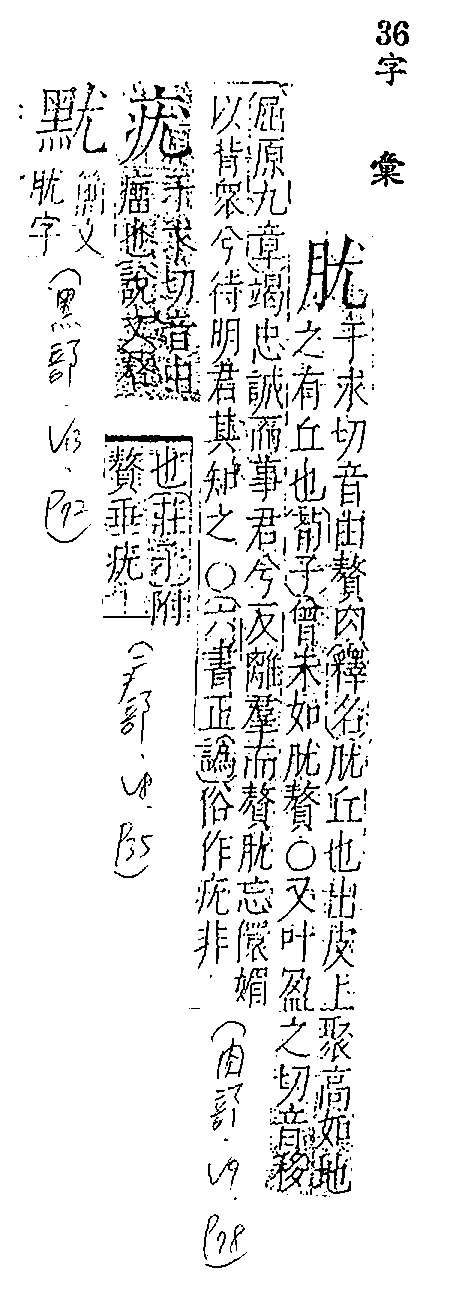 36
字彙
肬
于求切音由贅肉釋名肬丘也出皮上聚高如地
之有丘也荀子曾未如肬贅○又叶盈之切音移
屈原九章竭忠誠而事君兮反離羣而贅肬忘儇媚
以背衆兮待明君其知之○六書正譌俗作疣非
(肉部.V9.P78)
疣
于求切音由
瘤也說文贅
也莊子附
贅垂疣
(疒部.V8.P35)
黕
籀文
肬字
(黑部.V13.P92)